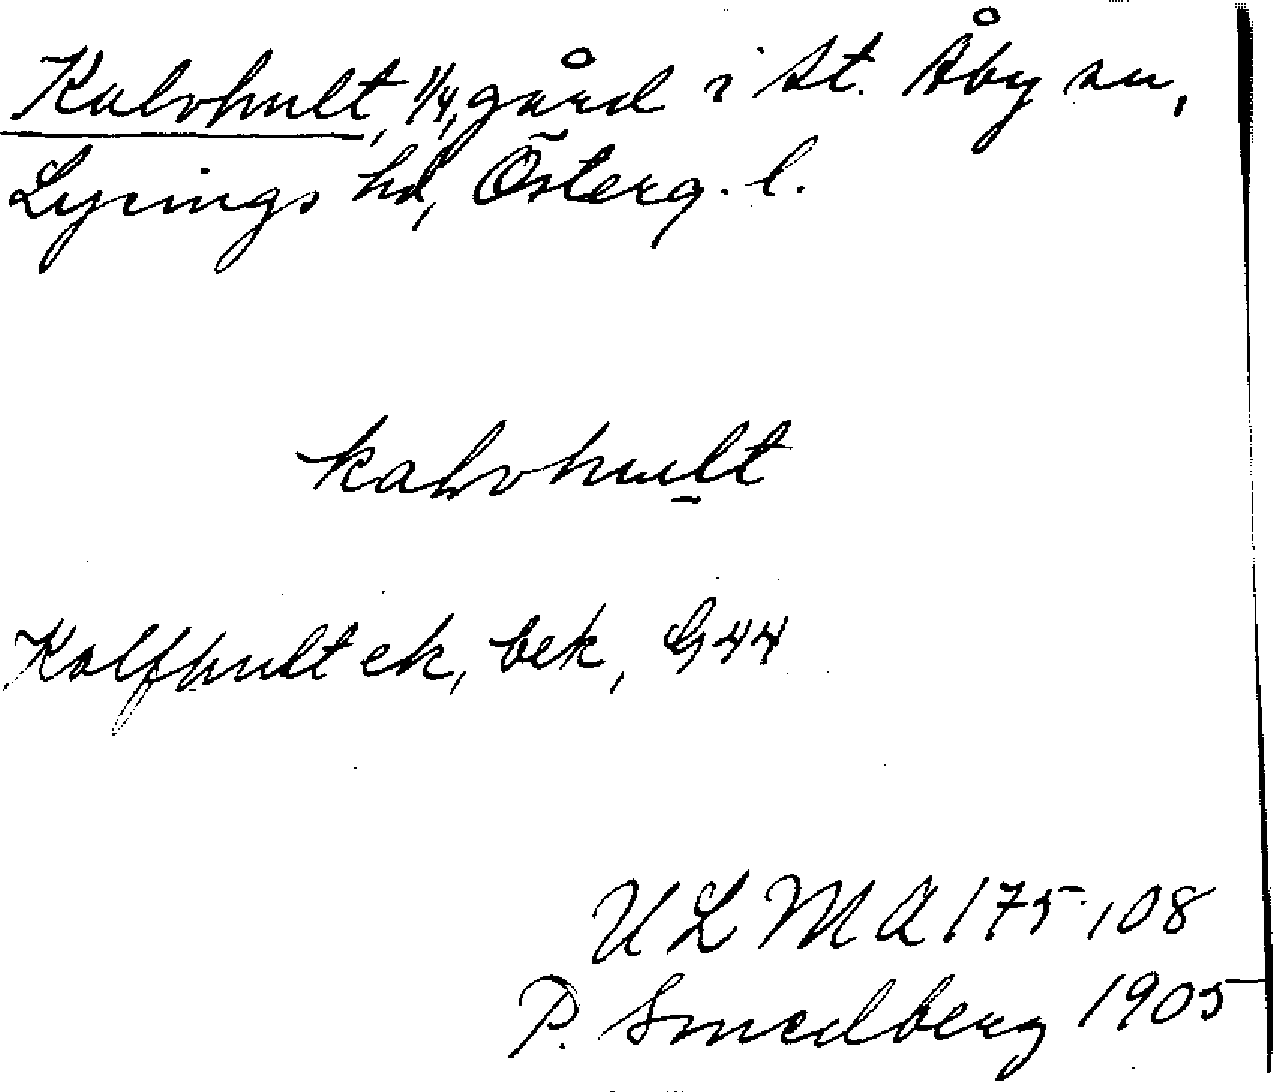 Kalvhult, 1/4, gård i St. Åby sn,
Lysings hd, Österg. l.
kalvhult
Kalfhult ek, bek, G 44
ULMA 175:108
P. Smedberg 1905